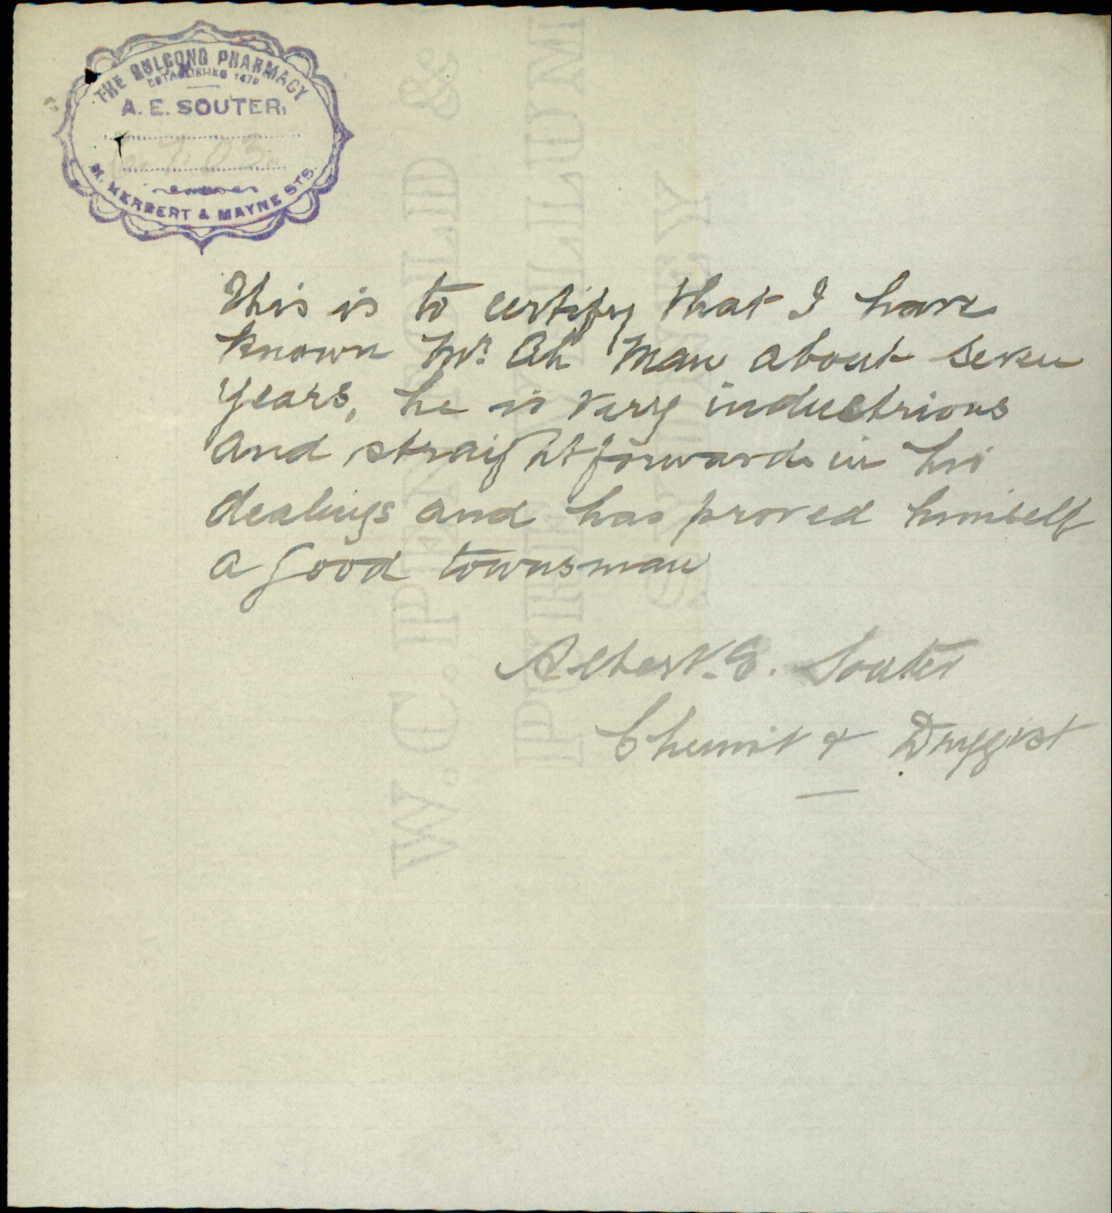 THE GULGONG PHARMACY
ESTABLISHED 1872
A. E. SOUTER,
HERBERT & MAYNE STS.
This is to certify that I have
known Mr. Ah Man about seven
years, he is very industrious
and straightforward in his
dealings and has proved himself
a good townsman
Albert. E. Souter
Chemist & Druggist
W. C. PENFOLD &
PURE VELLUM
SYDNEY